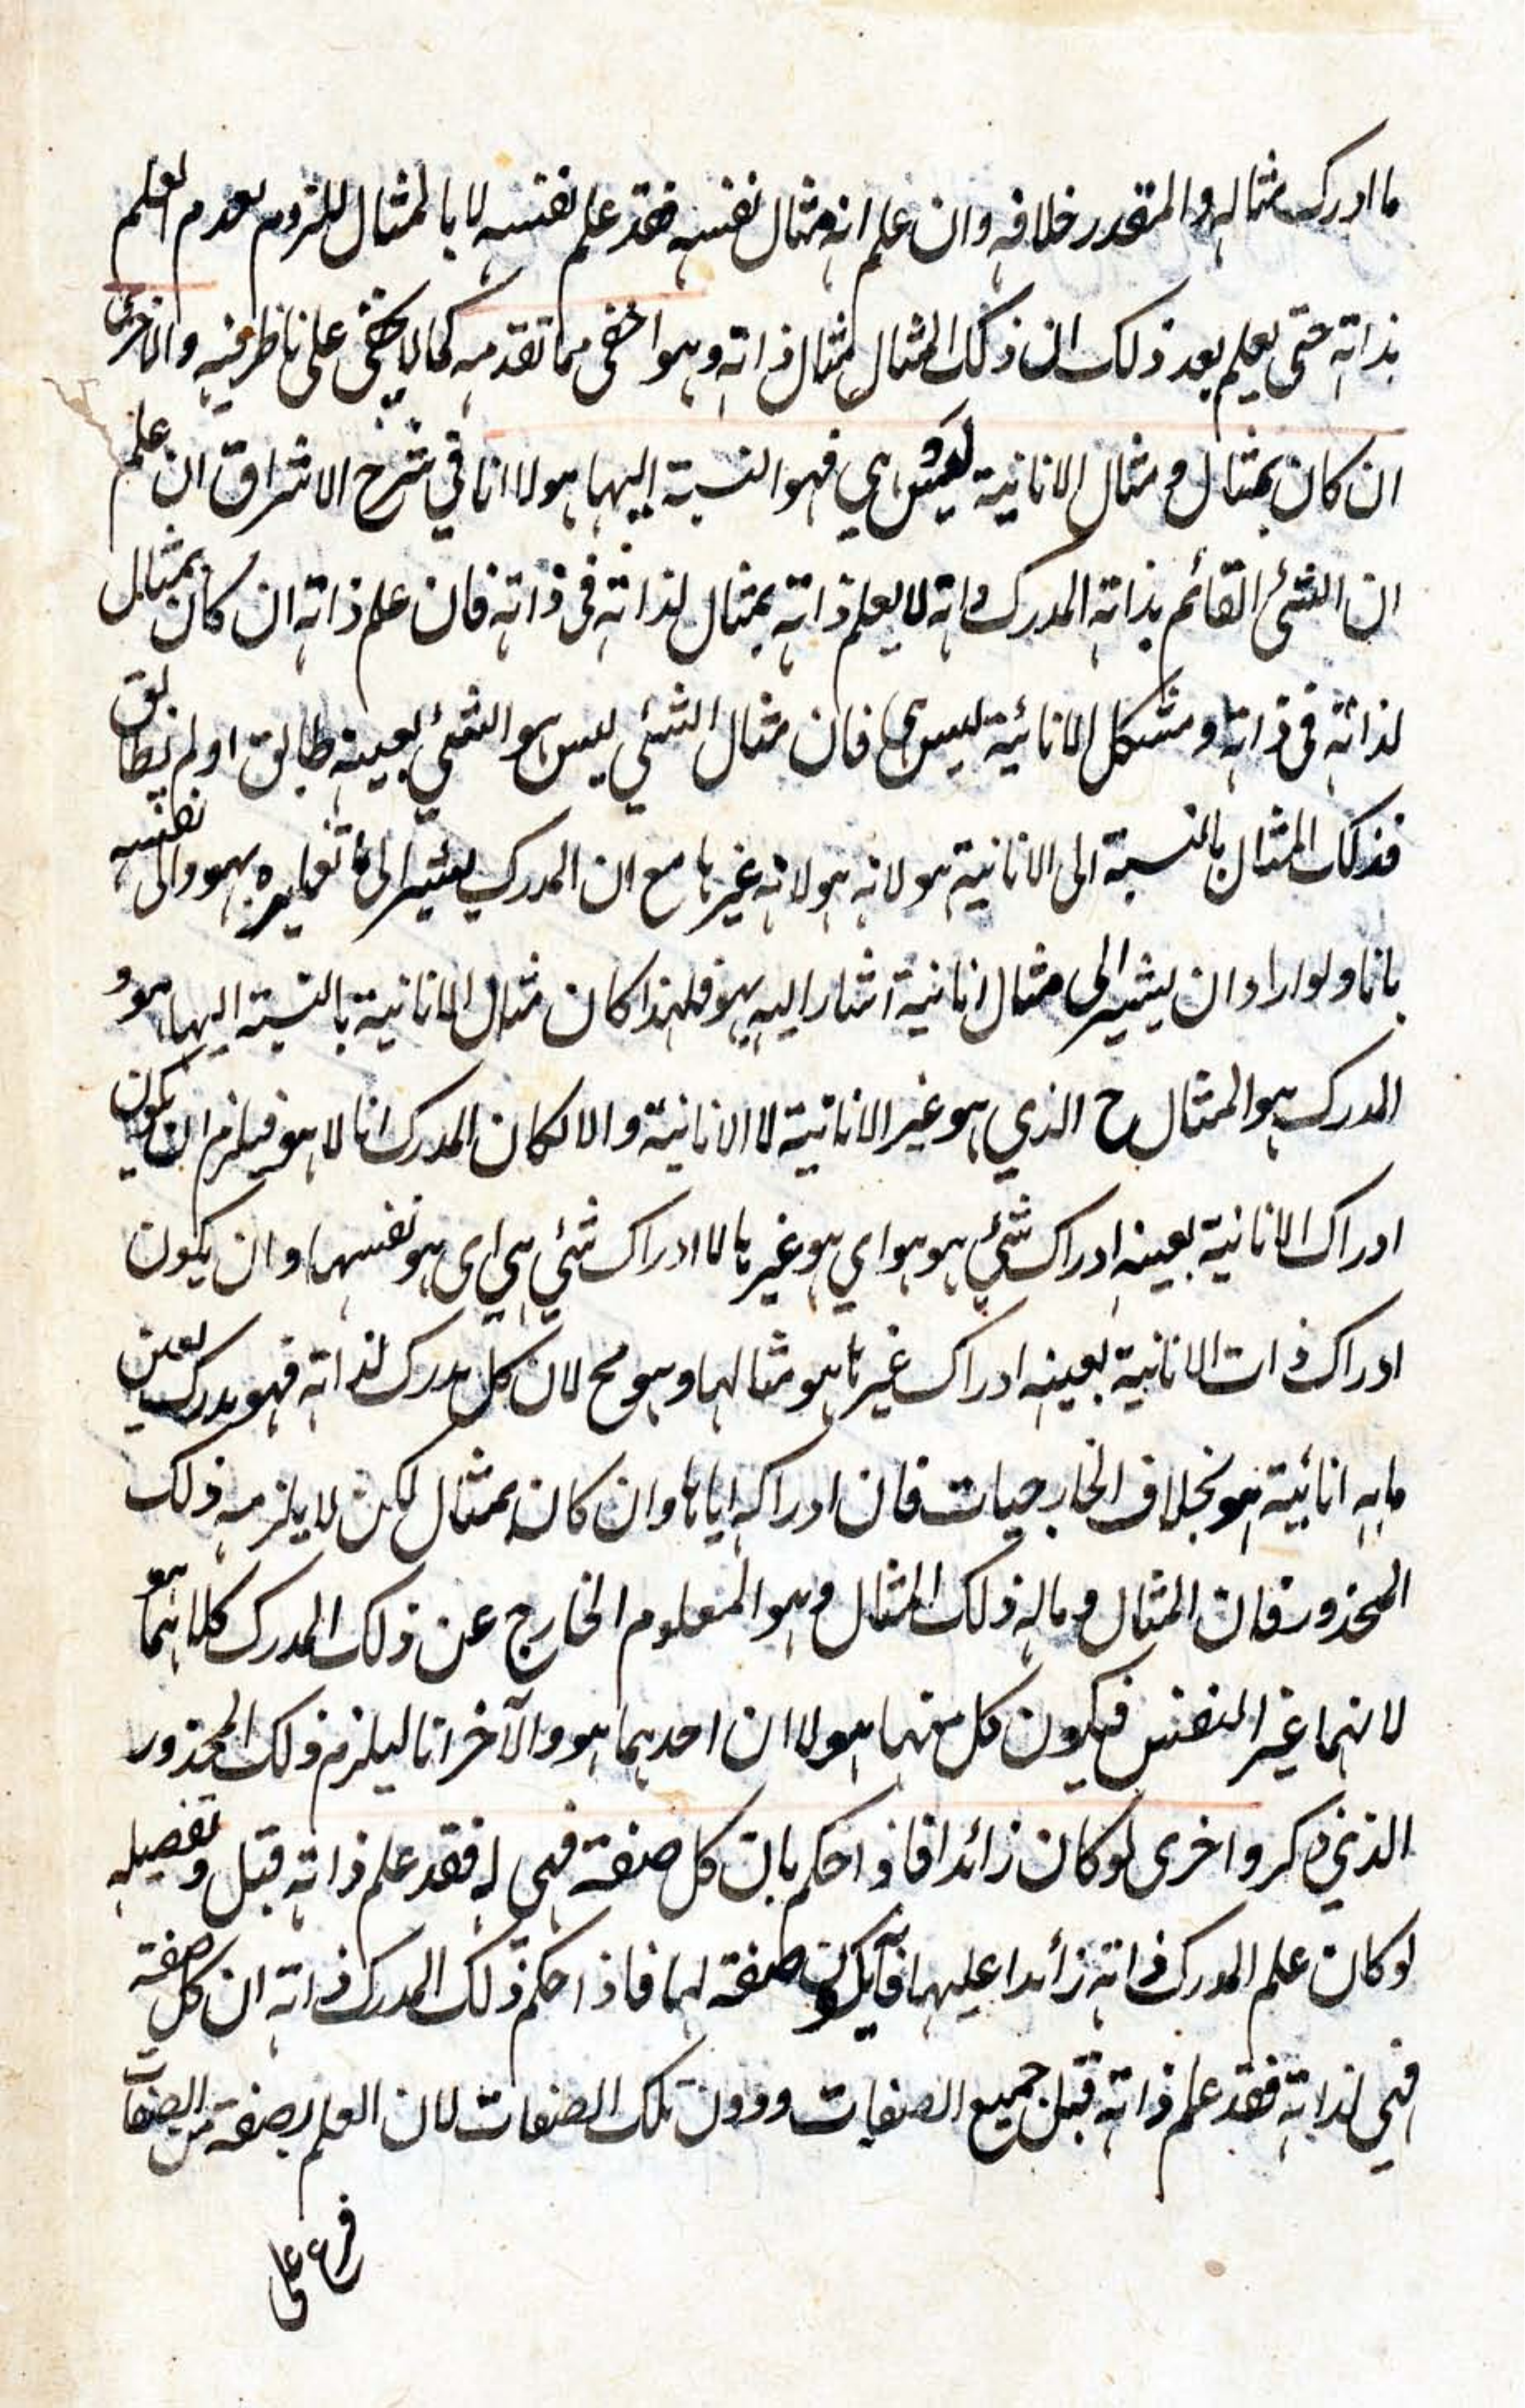 ما ادرك مثاله والمقدر خلافه وان علم انه مثال نفسه فقد علم نفسه لا بالمثال للزوم تعدم العلم
بذاته حتى يعلم بعد ذلك ان ذلك المثال مثال ذاته وهو اخفى مما تقدمه كما لا يخفى على ناظر فيه والاخرى
ان كان بمثال ومثال الانانية ليس هي فهو النسبة اليها هو لا انا في شرح الاشراق ان علم
ان الشئ القائم بذاته المدرك ذاته لا يعلم ذاته بمثال لذاته في ذاته فان علم ذاته ان كان بمثال
لذاته في ذاته ومثكل الانائية ليس هي فان مثال الشئي ليس هو الشئي بعينه طابق او لم يطابق
فذلك المثال بالنسبة الى الانانية هو لانه هو لانه غيرها مع ان المدرك يشير الى ما تغايره بهو والى نفسه
بانا ولو اراد ان يشير الى مثال انانية اشار اليه بهو فلهذا كان مثال الانانية بالنسبة اليها هو و
المدرك هو المثال ح الذي هو غير الانانية لا الانانية والا لكان المدرك انا لا هو فيلزم ان يكون
ادراك الانانية بعينه ادراك شئي هو هو اي هو غيرها لا ادراك شئي هي اي هو نفسها وان يكون
ادراك ذات الانانية بعينه ادراك غيرها هو مثالها وهو مح لان كل مدرك لذاته فهو مدرك لعين
ما به انائية هو بخلاف الخارجيات فان ادراكه اياها وان كان بمثال لكن لا يلزمه ذلك
المحذور فان المثال وما له ذلك المثال وهو المعلوم الخارج عن ذلك المدرك كلاهما هو
لانهما غير النفس فيكون كل منهما هو لا ان احدهما هو والآخر انا ليلزم ذلك المحذور
الذي ذكر واخرى لو كان زائدا فاذ احكم بان كل صفة فهي له فقد علم ذاته قبل وتفصيله
لو كان علم المدرك ذاته زائدا عليها فآنه يكون صفة لها فاذ احكم ذلك المدرك ذاته ان كل صفة
فهي لذاته فقد علم ذاته قبل جميع الصفات ودون تلك الصفات لان العلم بصفة من الصفات
فرع على